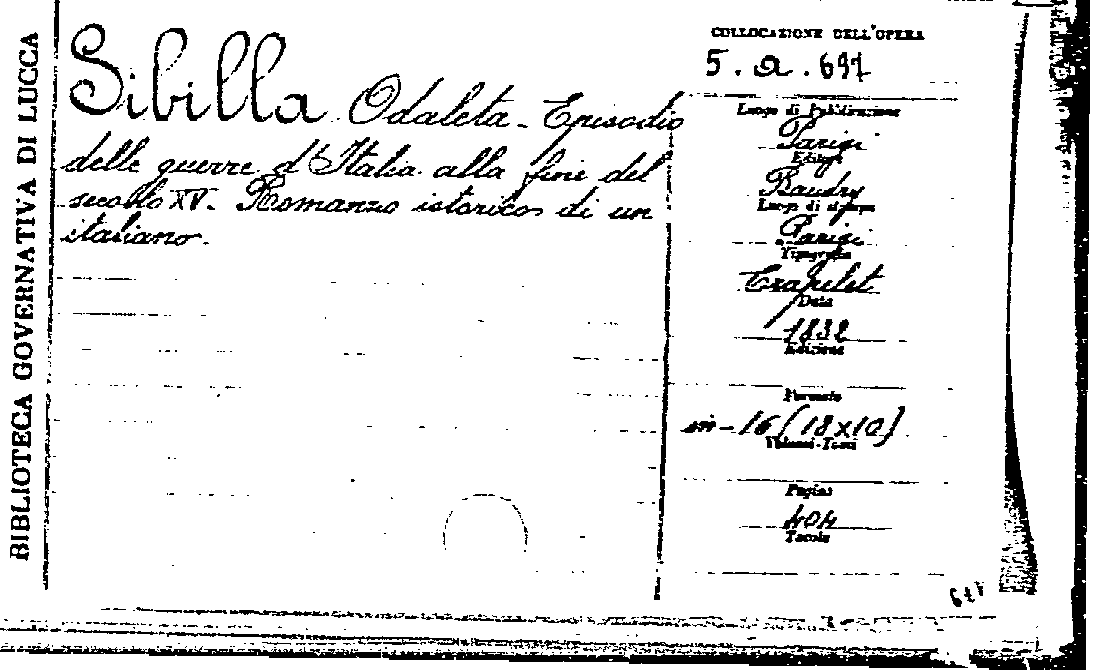 BIBLIOTECA GOVERNATIVA DI LUCCA
Sibilla Odaleta - Episodio
delle guerre d'Italia alla fine del
secolo XV. Romanzo istorico di un
italiano.
COLLOCAZIONE DELL'OPERA
5. a. 697
Luogo di Pubblicazione
Parigi
Editore
Baudry
Luogo di stampa
Parigi
Tipografia
Crapelet
Data
1832
Edizione
Formato
in-16 (18x10)
Volumi-Tomi
Pagine
404
Tavole